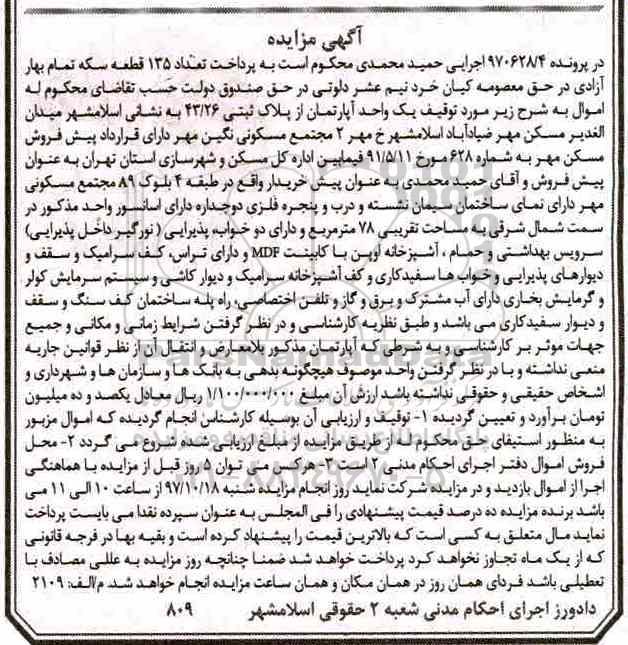 آگهی مزایده
در پرونده ۹۷۰۶۲۸/۴ اجرایی حمید محمدی محکوم است به پرداخت تعداد ۱۳۵ قطعه سکه تمام بهار
آزادی در حق معصومه کیان خرد نیم عشر دلوتی در حق صندوق دولت حسب تقاضای محکوم له
اموال به شرح زیر مورد توقیف یک واحد آپارتمان از پلاک ثبتی ۴۳/۲۶ به نشانی اسلامشهر میدان
الغدیر مسکن مهر ضیاآباد اسلامشهر خ مهر ۲ مجتمع مسکونی نگین مهر دارای قرارداد پیش فروش
مسکن مهر به شماره ۶۲۸ مورخ ۹۱/۵/۱۱ فیمابین اداره کل مسکن و شهرسازی استان تهران به عنوان
پیش فروش و آقای حمید محمدی به عنوان پیش خریدار واقع در طبقه ۴ بلوک ۸۹ مجتمع مسکونی
مهر دارای نمای ساختمان سیمان نشسته و درب و پنجره فلزی دوجداره دارای اسانسور واحد مذکور در
سمت شمال شرقی به مساحت تقریبی ۷۸ مترمربع و دارای دو خواب، پذیرایی ( نورگیر داخل پذیرایی)
سرویس بهداشتی و حمام ، آشپزخانه اوپن با کابینت MDF و دارای تراس، کف سرامیک و سقف و
دیوارهای پذیرایی و خواب ها سفیدکاری و کف آشپزخانه سرامیک و دیوار کاشی و سیستم سرمایش کولر
و گرمایش بخاری دارای آب مشترک و برق و گاز و تلفن اختصاصی، راه پله ساختمان کف سنگ و سقف
و دیوار سفیدکاری می باشد و طبق نظریه کارشناسی و در نظر گرفتن شرایط زمانی و مکانی و جمیع
جهات موثر بر کارشناسی و به شرطی که آپارتمان مذکور بلامعارض و انتقال آن از نظر قوانین جاریه
منعی نداشته و با در نظر گرفتن واحد موصوف هیچگونه بدهی به بانک ها و سازمان ها و شهرداری و
اشخاص حقیقی و حقوقی نداشته باشد ارزش آن مبلغ ۱/۱۰۰/۰۰۰/۰۰۰ ریال معادل یکصد و ده میلیون
تومان برآورد و تعیین گردیده ۱- توقیف و ارزیابی آن بوسیله کارشناس انجام گردیده که اموال مزبور
به منظور استیفای حق محکوم له از طریق مزایده از مبلغ ارزیابی شده شروع می گردد ۲- محل
فروش اموال دفتر اجرای احکام مدنی ۲ است ۳- هرکس می توان ۵ روز قبل از مزایده با هماهنگی
اجرا از اموال بازدید و در مزایده شرکت نماید روز انجام مزایده شنبه ۹۷/۱۰/۱۸ از ساعت ۱۰ الی ۱۱ می
باشد برنده مزایده ده درصد قیمت پیشنهادی را فی المجلس به عنوان سپرده نقدا می بایست پرداخت
نماید مال متعلق به کسی است که بالاترین قیمت را پیشنهاد کرده است و بقیه بها در فرجه قانونی
که از یک ماه تجاوز نخواهد کرد پرداخت خواهد شد ضمنا چنانچه روز مزایده به عللی مصادف با
تعطیلی باشد فردای همان روز در همان مکان و همان ساعت مزایده انجام خواهد شد. م/الف: ۲۱۰۹
دادورز اجرای احکام مدنی شعبه ۲ حقوقی اسلامشهر ۸۰۹